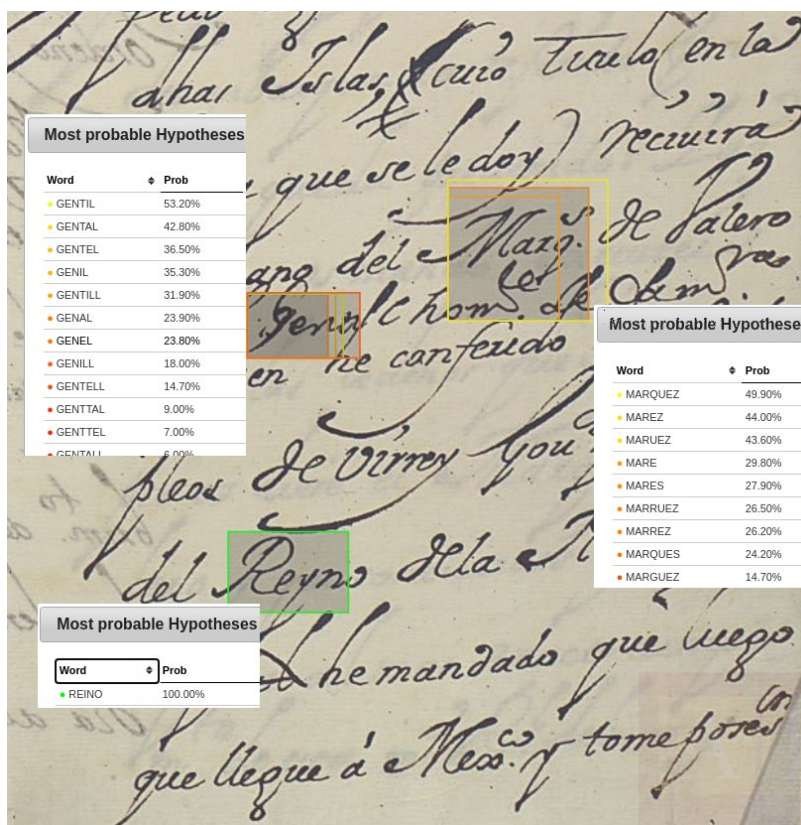 ahas Islas, cuio Titulo (en la
que se le doy) reciuirá
del Marqs. de Valero
Gentil homᵉ. de
en he conferido
pleos de Virrey
del Reyno dela
he mandado que luego
que llegue á Mexco. y tome poses
on
Most probable Hypotheses
Word Prob
GENTIL 53.20%
GENTAL 42.80%
GENTEL 36.50%
GENIL 35.30%
GENTILL 31.90%
GENAL 23.90%
GENEL 23.80%
GENILL 18.00%
GENTELL 14.70%
GENTTAL 9.00%
GENTTEL 7.00%
GENTALL 6.00%
Most probable Hypothese
Word Prob
MARQUEZ 49.90%
MAREZ 44.00%
MARUEZ 43.60%
MARE 29.80%
MARES 27.90%
MARRUEZ 26.50%
MARREZ 26.20%
MARQUES 24.20%
MARGUEZ 14.70%
Most probable Hypotheses
Word Prob
REINO 100.00%